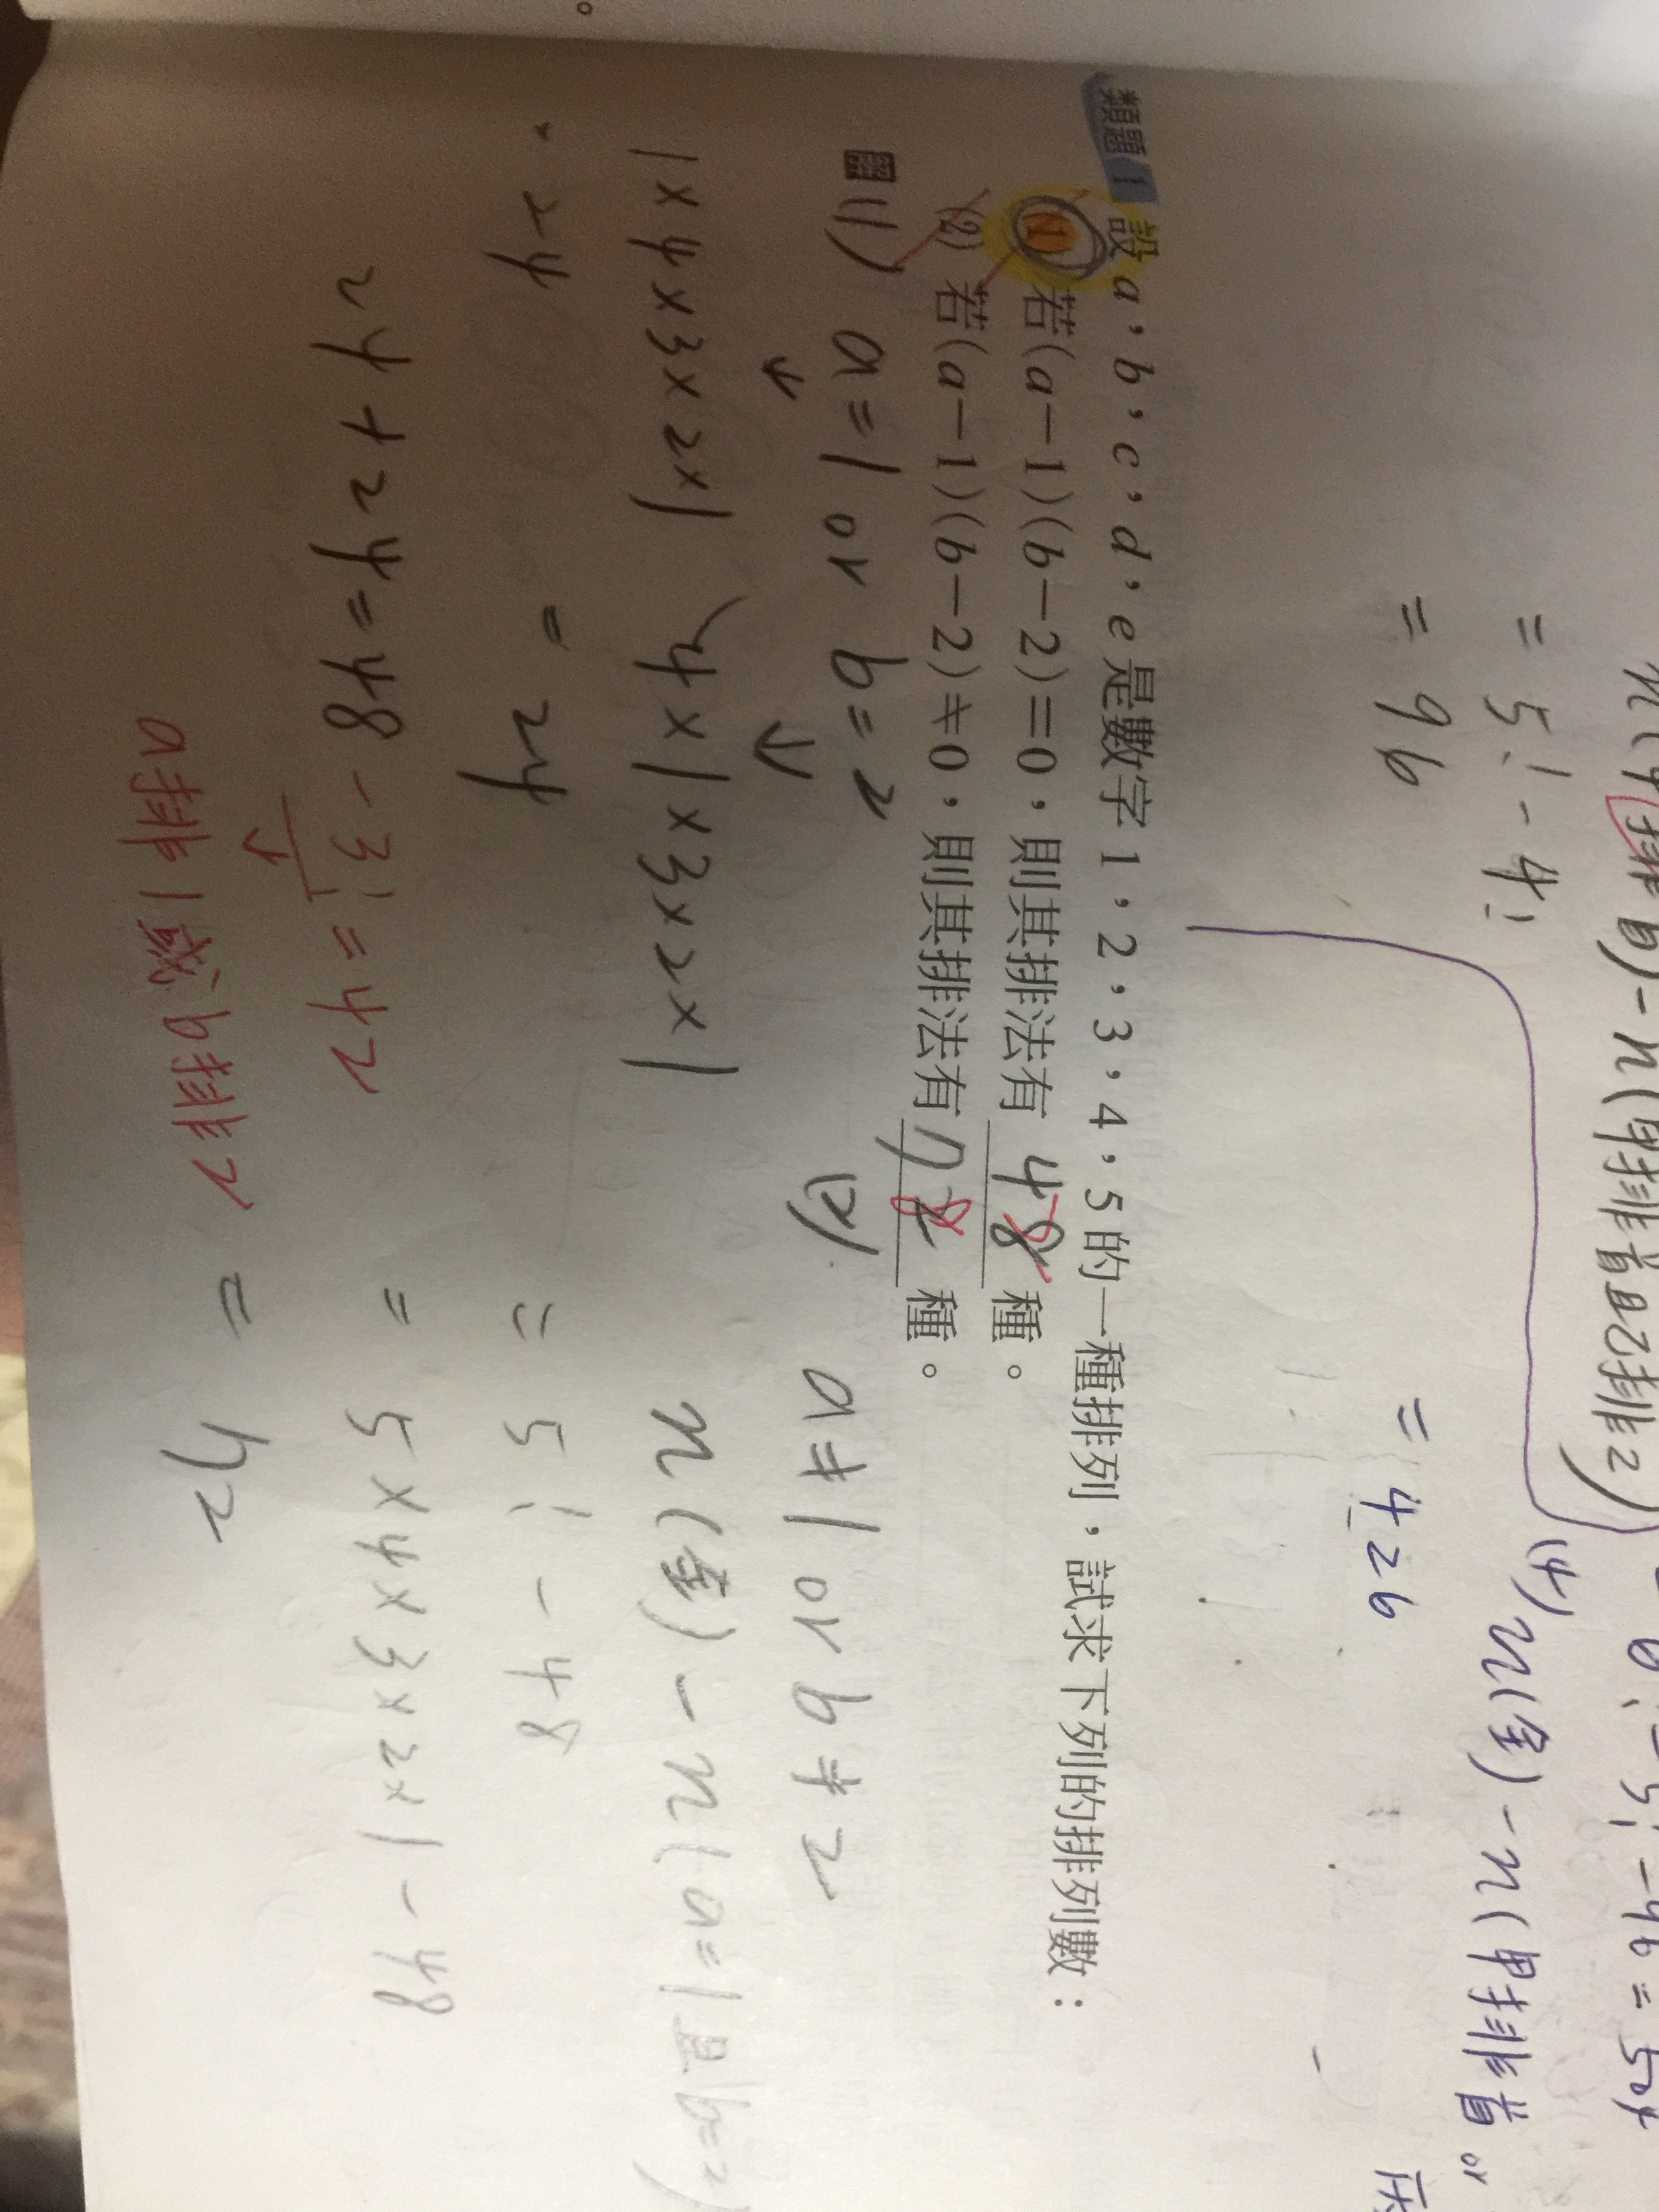 = 5! - 4!
= 96
= 426
(4) n(全) - n(甲排首 or
類題1 設 a,b,c,d,e 是數字 1,2,3,4,5 的一種排列,試求下列的排列數:
(1) 若(a-1)(b-2)=0,則其排法有 48 種。
(2) 若(a-1)(b-2)≠0,則其排法有 種。
(1) a=1 or b=2
↓ ↓
1×4×3×2×1 4×1×3×2×1
= 24
24+24=48 - 3! = 42
a排1 b排2
(2) a≠1 or b≠2
n(全) - n(a=1且b=2)
= 5! - 48
= 5×4×3×2×1 - 48
= 72